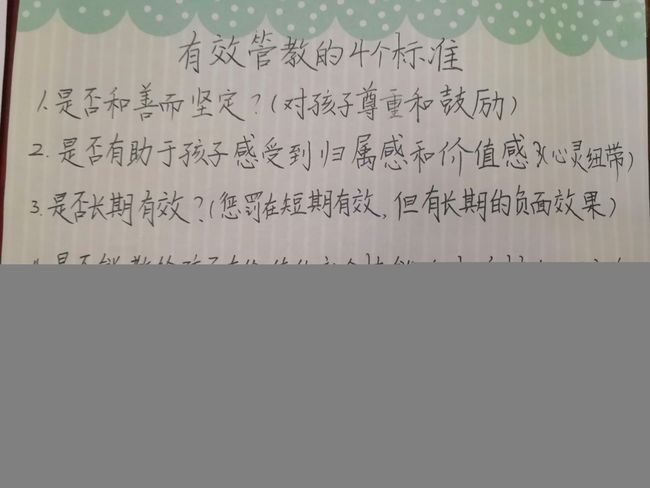 有效管教的4个标准
1.是否和善而坚定?(对孩子尊重和鼓励)
2.是否有助于孩子感受到归属感和价值感?(心灵纽带)
3.是否长期有效?(惩罚在短期有效,但有长期的负面效果)